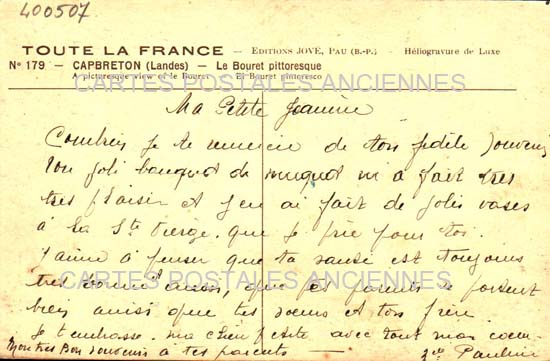 400507
TOUTE LA FRANCE – EDITIONS JOVÉ, PAU (B.-P.) – Héliogravure de Luxe
N° 179 – CAPBRETON (Landes) – Le Bouret pittoresque
A picturesque view of le Bouret – El Bouret pintoresco
CARTES POSTALES ANCIENNES
Ma Petite Jeannine
Combien je te remercie de ton fidèle souvenir
Ton joli bouquet de muguet m'a fait très
très plaisir et j'en ai fait de jolis vases
à la Ste Vierge, que je prie pour toi.
J'aime à penser que ta santé est toujours
CARTES POSTALES ANCIENNES
très bonne aussi, que tes parents se portent
bien ainsi que tes soeurs et ton frère.
Je t'embrasse ma chère petite avec tout mon coeur
Mon très bon souvenir à tes parents — Pauline